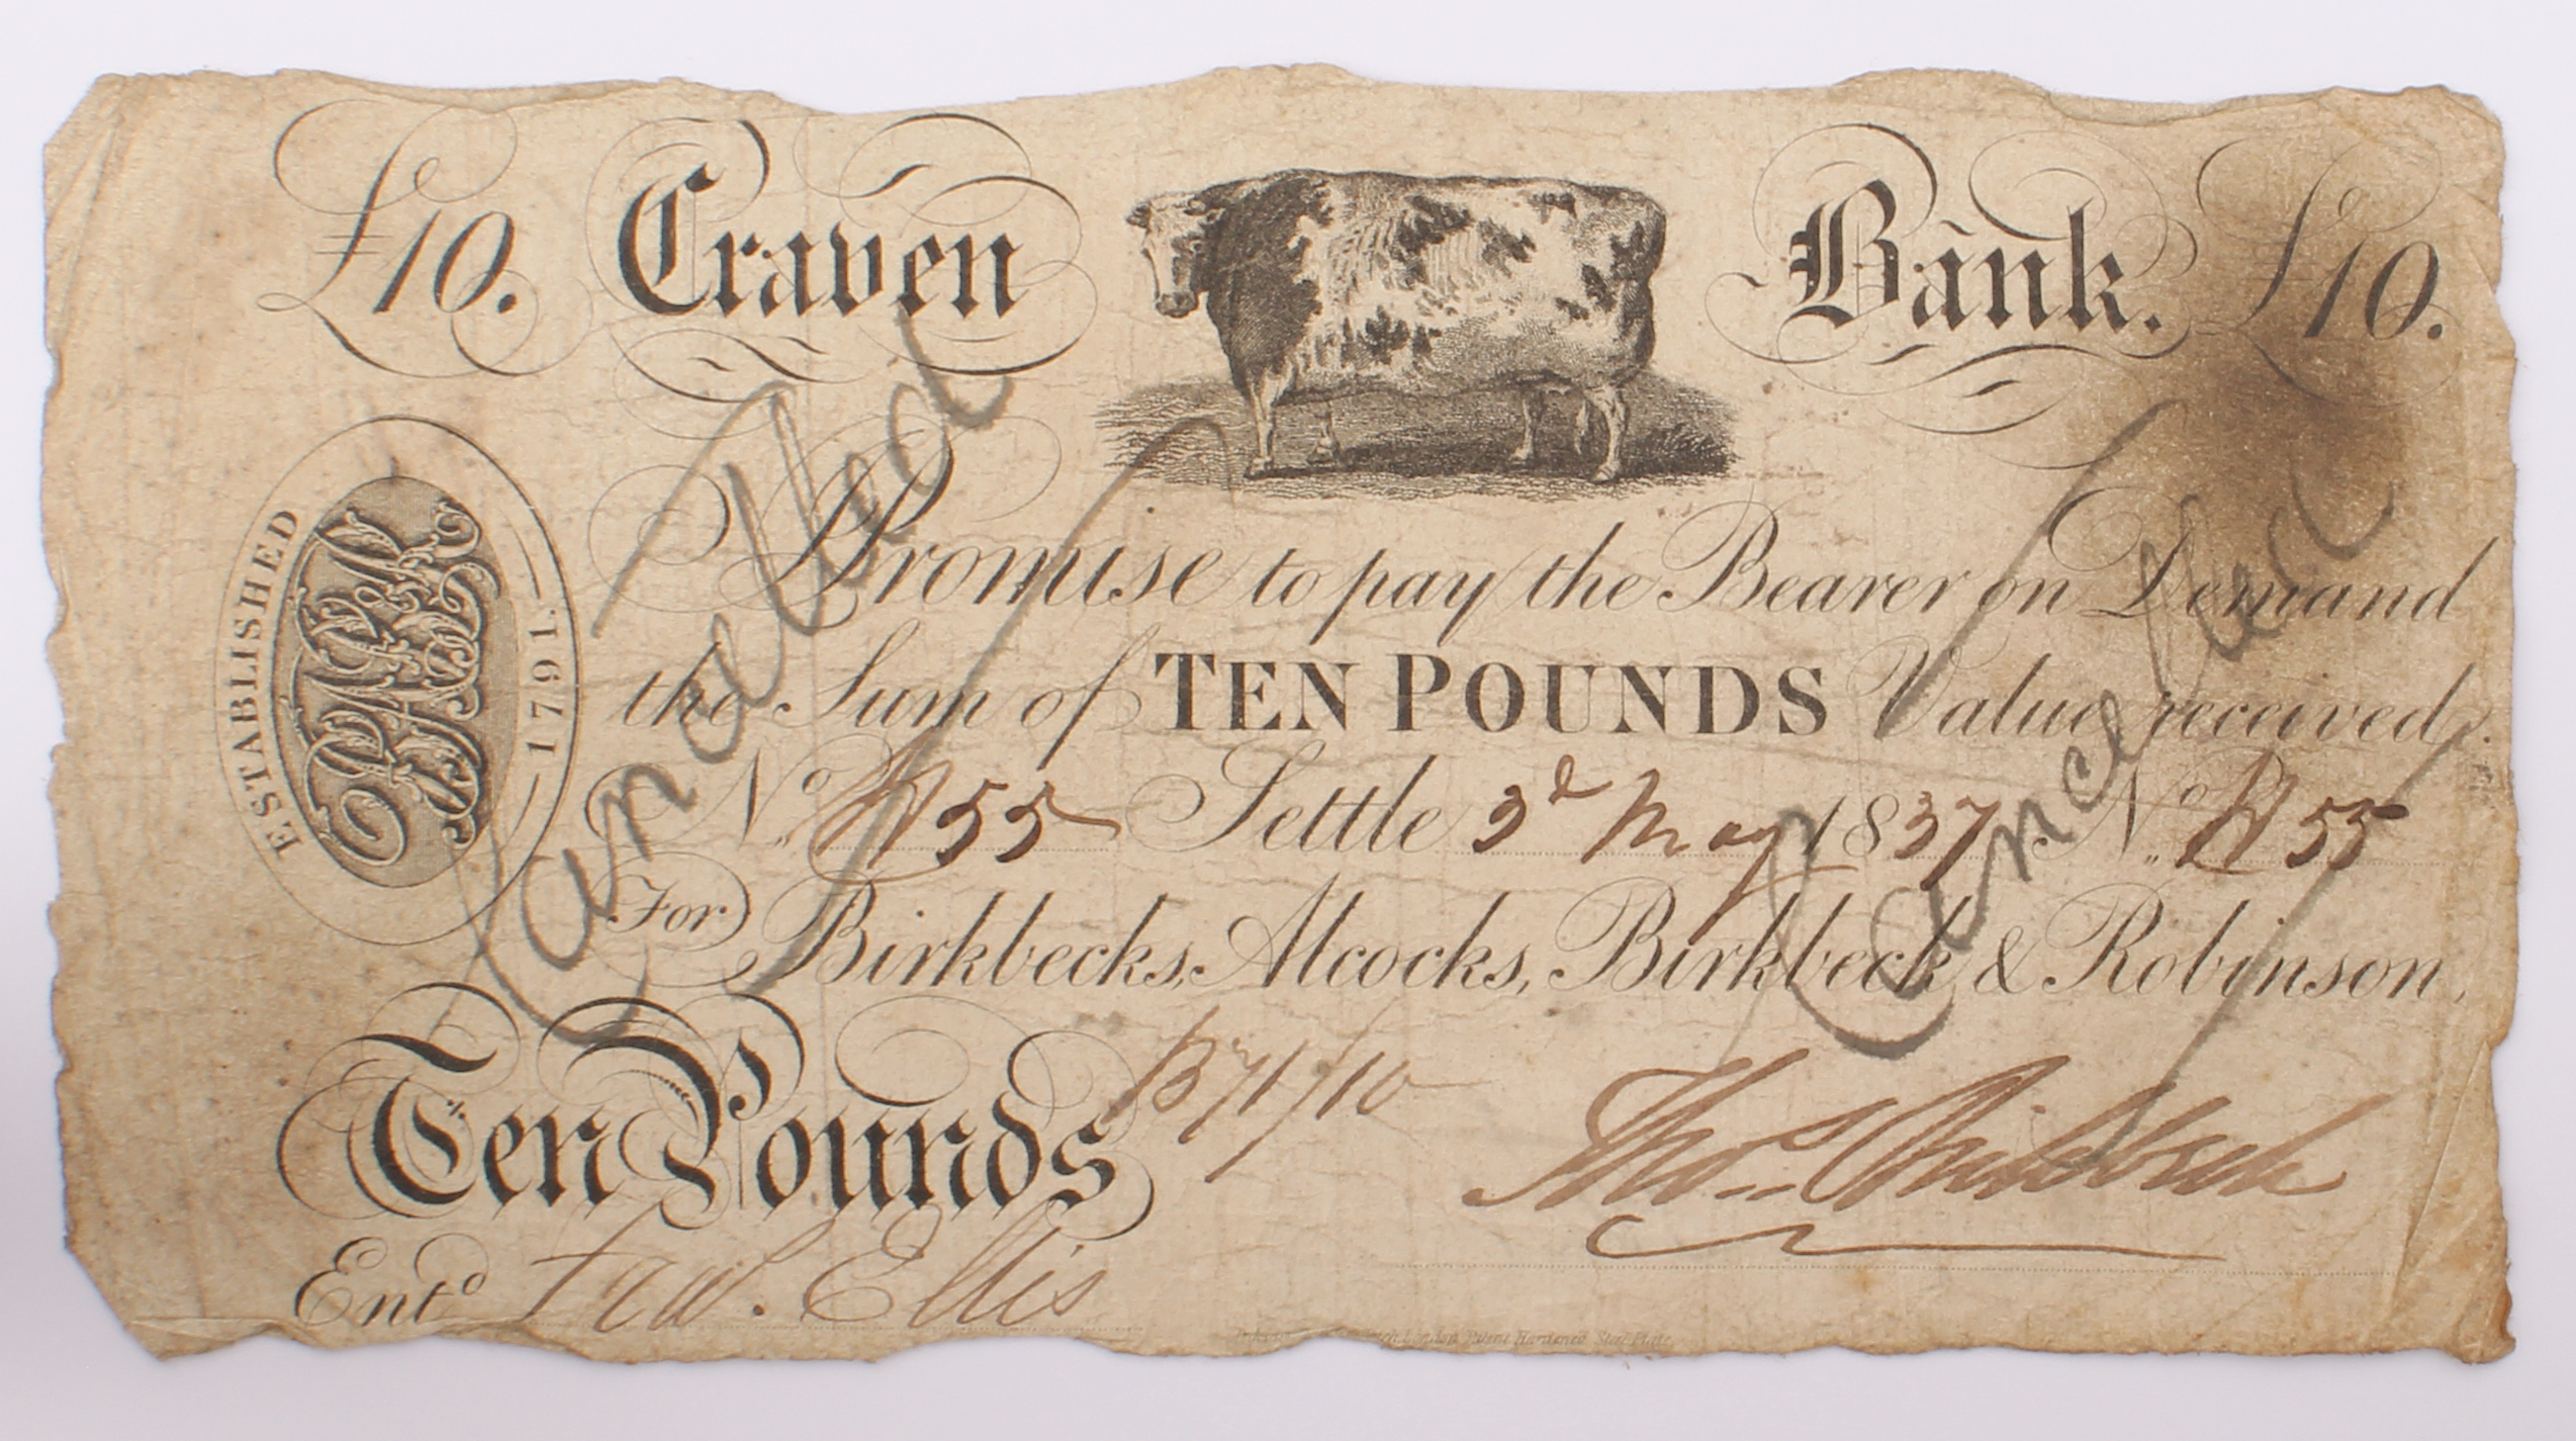 £10. Craven Bank. £10.
ESTABLISHED 1791.
Cancelled
Cancelled
Promise to pay the Bearer on Demand
the Sum of TEN POUNDS Value received.
No. 55 Settle 2d May 1837 No. 55
For Birkbecks, Alcocks, Birkbeck & Robinson,
Ten Pounds
Thos. Birkbeck
Entd Ellis
London Patent Hardened Steel Plate